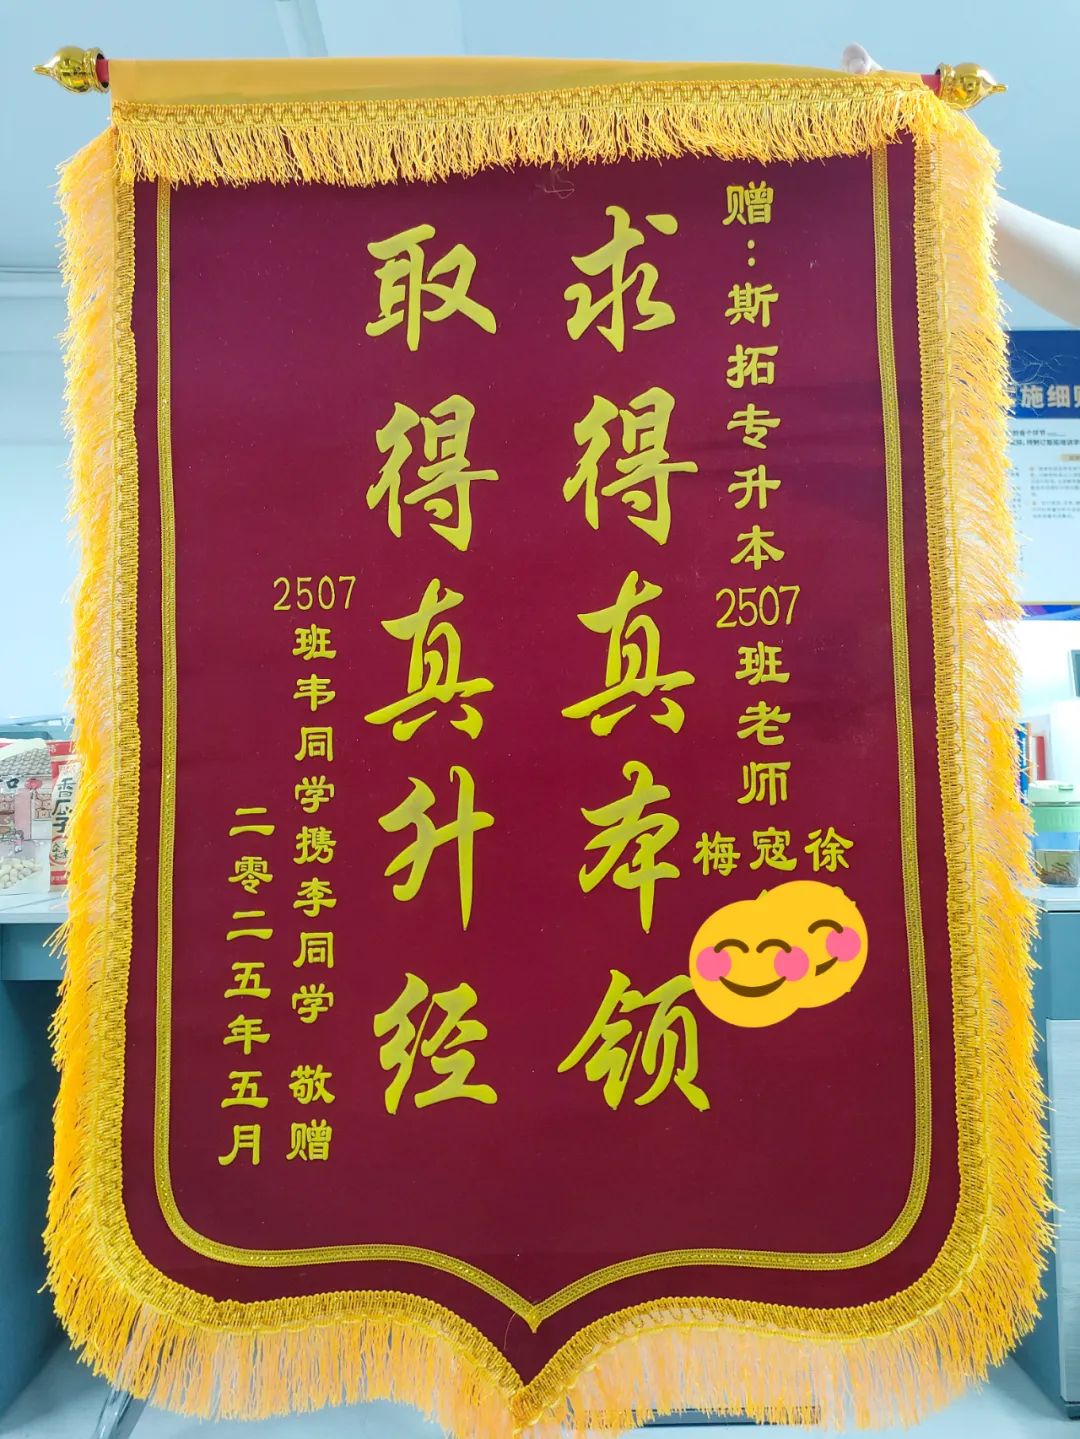 赠：斯拓专升本2507班老师
徐
寇
梅
求得真本领
取得真升经
2507班韦同学携李同学 敬赠
二零二五年五月
施细则